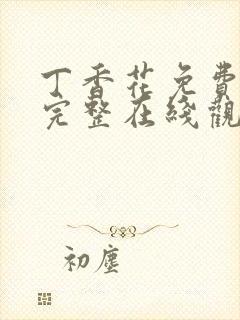 丁香花免費
完整在綫觀
初塵